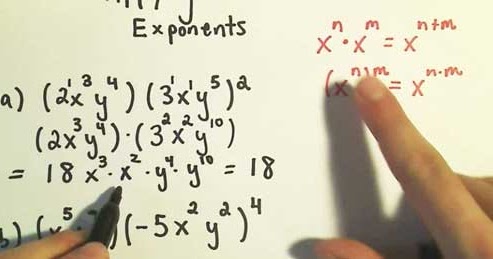 Exponents
xⁿ · xᵐ = xⁿ⁺ᵐ
(xⁿ)ᵐ = xⁿ·ᵐ
a) (2¹x³y⁴)(3¹x¹y⁵)²
(2x³y⁴)·(3²x²y¹⁰)
= 18 x³· x² · y⁴· y¹⁰ = 18
b) (x⁵ )(-5x²y²)⁴